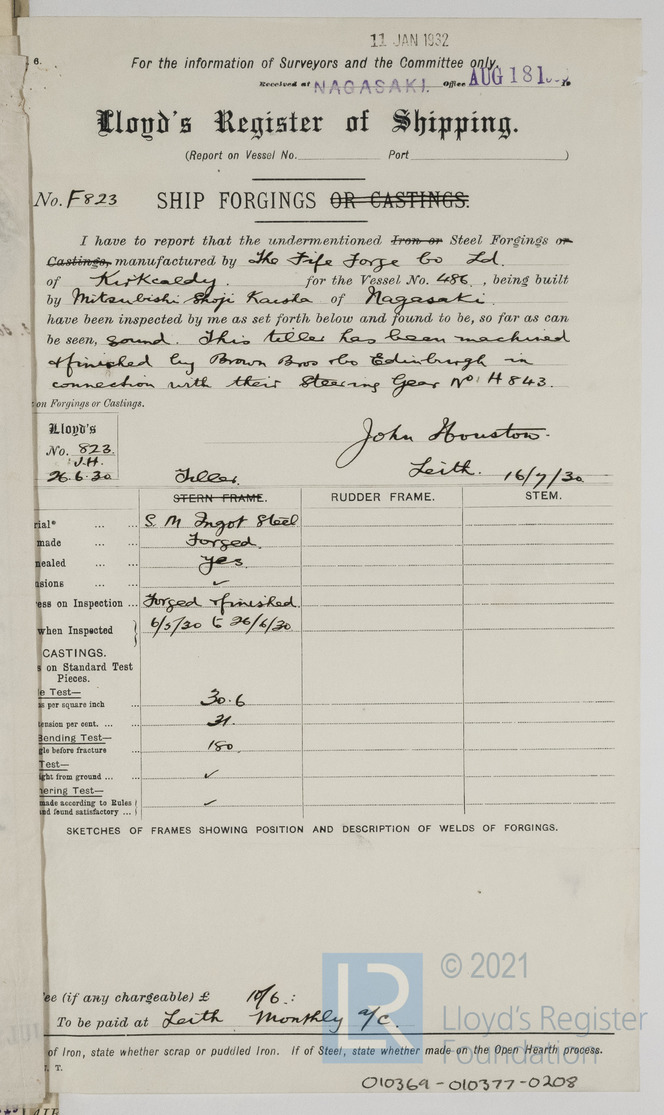 11 JAN 1932
6.
For the information of Surveyors and the Committee only.
Received at NAGASAKI. Office AUG 18 19
Lloyd's Register of Shipping.
(Report on Vessel No. Port )
No. F823 SHIP FORGINGS OR CASTINGS.
I have to report that the undermentioned Iron or Steel Forgings or
Castings, manufactured by The Fife Forge Co Ld.
of Kirkcaldy. for the Vessel No. 486 , being built
by Mitsubishi Shoji Kaisha of Nagasaki.
have been inspected by me as set forth below and found to be, so far as can
be seen, sound. This tiller has been machined
& finished by Brown Bros & Co Edinburgh in
connection with their Steering Gear No. H 843.
on Forgings or Castings.
Lloyd's
No. 823.
J.H.
26.6.30
John Houston.
Leith. 16/7/30
Tiller.
STERN FRAME. RUDDER FRAME. STEM.
rial* ... ... S. M Ingot Steel
made ... ... Forged.
nealed ... ... Yes
nsions ... ... ✓
ess on Inspection ... Forged & finished.
when Inspected } 6/5/30 to 26/6/30
CASTINGS.
s on Standard Test
Pieces.
e Test—
s per square inch ... 30.6
tension per cent. ... ... 31
Bending Test—
gle before fracture ... 180.
Test—
ght from ground ... ... ✓
ering Test—
made according to Rules
and found satisfactory ... } ✓
SKETCHES OF FRAMES SHOWING POSITION AND DESCRIPTION OF WELDS OF FORGINGS.
ee (if any chargeable) £ 10/6 :
To be paid at Leith Monthly a/c.
of Iron, state whether scrap or puddled Iron. If of Steel, state whether made on the Open Hearth process.
T.
LR
© 2021
Lloyd's Register
Foundation
010369-010377-0208